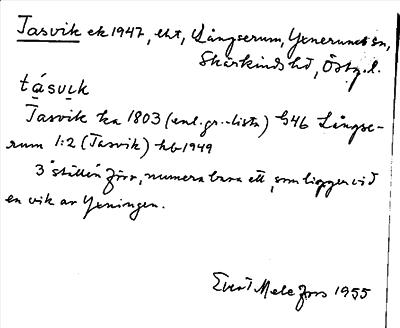 Tasvik ek 1947, eht, Långserum, Yxnerums sn,
Skärkinds hd, Östg. l.
tásvik
Tasvik ka 1803 (enl. gr.-lista) G46 Långse-
rum 1:2 (Tasvik) kb 1949
3 ställen förr, numera bara ett, som ligger vid
en vik av Yxningen.
Evert Melefors 1955